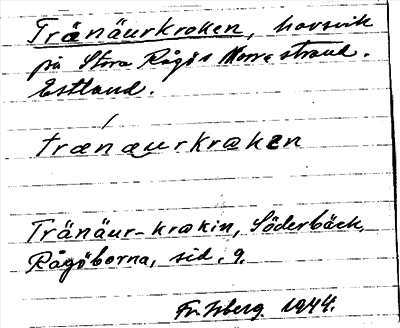 Tränäurkroken, havsvik
på Stora Rågös Norra strand.
Estland.
trænæurkrakεn
Tränäur-krakin, Söderbäck,
Rågöborna, sid. 9.
Fr. Isberg 1944.